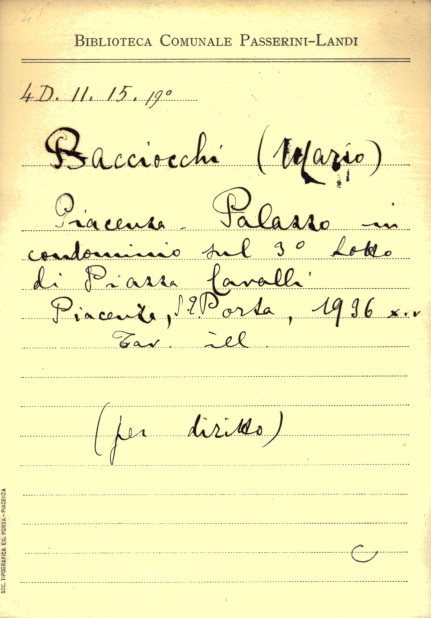 BIBLIOTECA COMUNALE PASSERINI-LANDI
4 D. 11. 15. 19°
Bacciocchi (Mario)
Piacenza - Palazzo in
condominio sul 3° Lotto
di Piazza Cavalli
Piacenza, Porta, 1936 x.v
Tav. ill.
(per diritto)
C
SOC. TIPOGRAFICA ED. PORTA - PIACENZA